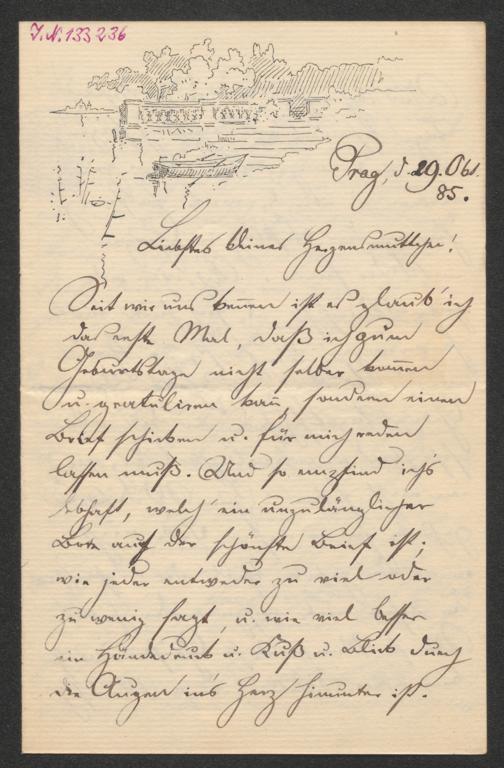 J.N. 133236
Prag, d. 29. Okt.
85.
Liebstes kleines Herzensmuttchen!
Seit wir uns kennen ist es glaub' ich
das erste Mal, daß ich zum
Geburtstage nicht selber kommen
u. gratuliren kann, sondern einen
Brief schicken u. für mich reden
lassen muß. Und so empfind ich's
lebhaft, welch' ein unzulänglicher
Bote auch der schönste Brief ist;
wie jeder entweder zu viel oder
zu wenig sagt, u. wie viel besser
ein Händedruck u. Kuß u. Blick durch
die Augen in's Herz hinunter ist.